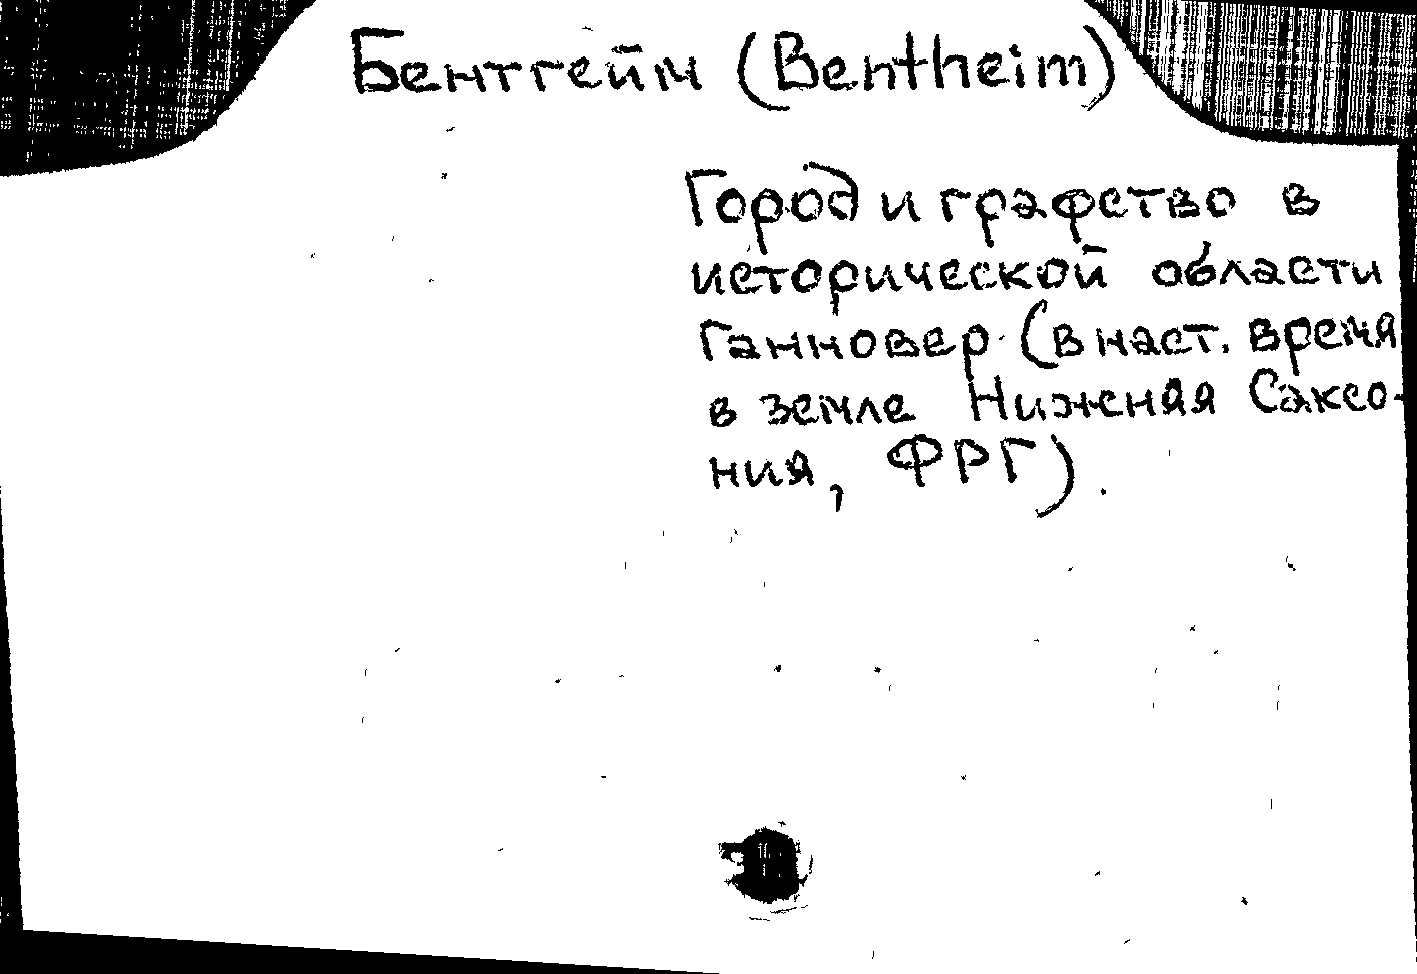 Бентгейм (Bentheim)
Город и графство в
исторической области
Ганновер (в наст. время
в земле Нижняя Саксо-
ния, ФРГ).